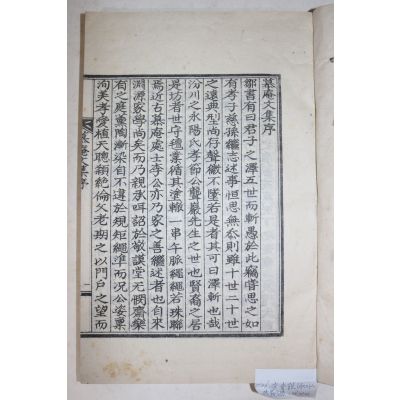 慕庵文集序
鄒書有曰君子之澤五世而斬愚於此竊嘗思之如
有孝子慈孫繼志述事恒思無忝則雖十世二十世
之遠典型尚存聲徽不墜若是者其可曰澤斬也哉
汾川之永陽氏孝節公聾巖先生之世也賢裔之居
是坊者世守種業循其塗轍一串午脈繩繩若珠聯
焉近古慕庵處士李公亦乃家之善繼述者也自來
淵源家學尚矣而乃親承咡詔於敬謨堂无悶齋樂
有之庭薰陶漸染自不違於規矩繩準而况公姿稟
洵美孝愛植天聰穎絶倫父老期之以門戶之望而
慕庵文集序
一